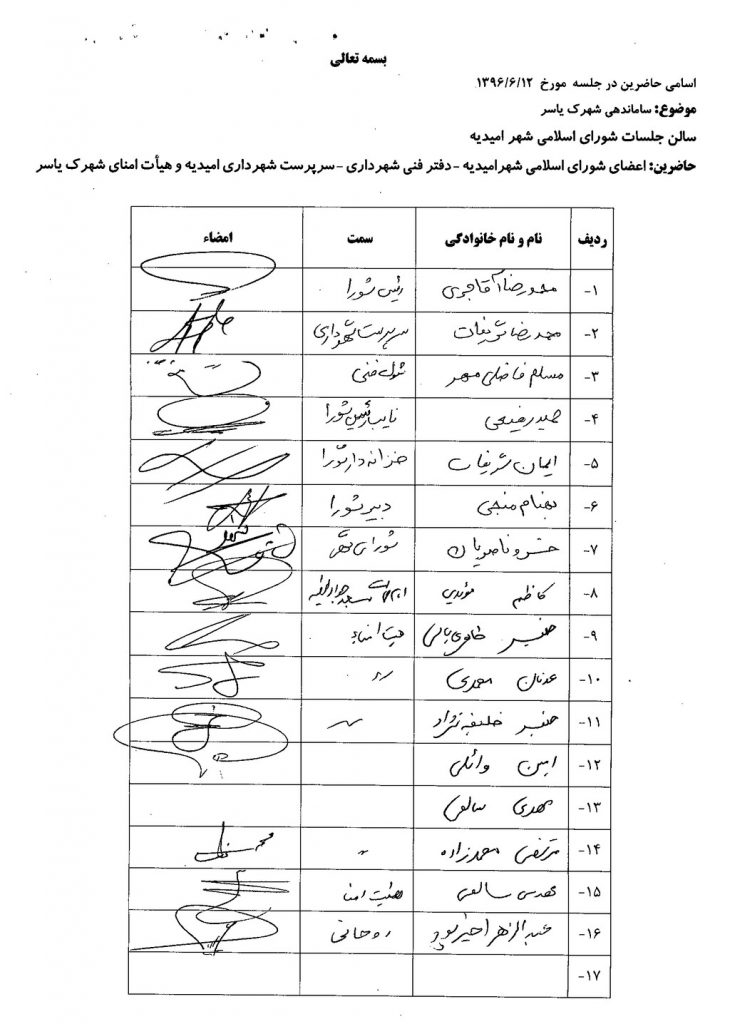 بسمه تعالی
اسامی حاضرین در جلسه مورخ ۱۳۹۶/۶/۱۲
موضوع: ساماندهی شهرک یاسر
سالن جلسات شورای اسلامی شهر امیدیه
حاضرین: اعضای شورای اسلامی شهرامیدیه -دفتر فنی شهرداری -سرپرست شهرداری امیدیه و هیأت امنای شهرک یاسر
ردیف نام و نام خانوادگی سمت امضاء
۱- محمدرضا آقاجری رئیس شورا
۲- محمدرضا شریفات سرپرست شهرداری
۳- مسلم فاضلی مهر فنی
۴- رفیعی نایب رئیس شورا
۵- ایمان شریفات خزانه دار شورا
۶- بهنام منجی دبیر شورا
۷- خسرو ناصریان شورای شهر
۸- کاظم مؤیدی
۹- قنبر هیت امناء
۱۰- عدنان محمدی
۱۱- قنبر خلیفه نژاد
۱۲- امین وائلی
۱۳- مهدی سالمی
۱۴- مرتضی محمدزاده "
۱۵- مهدی سالمی هئیت امنا
۱۶- عبدالزهرا روحانی
۱۷-